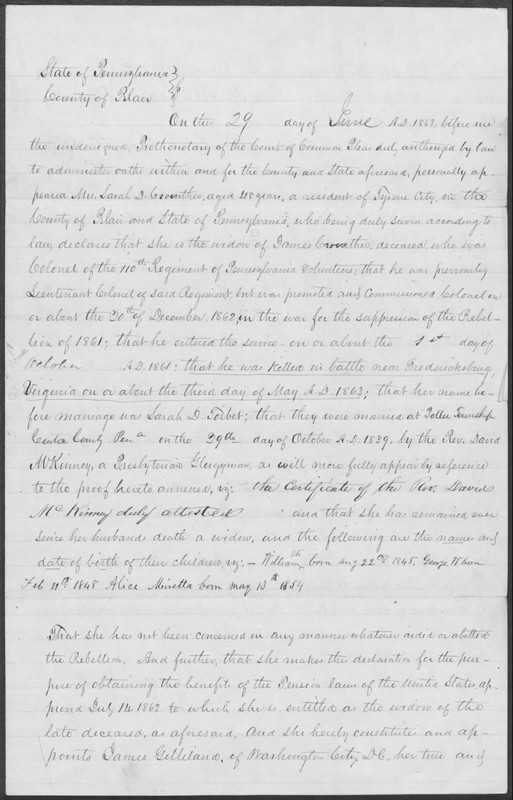 State of Pennsylvania }
County of Blair } ss
On this 29 day of June A.D. 1863, before me
the undersigned, Prothonotary of the Court of Common Pleas duly authorized by law
to administer oaths within and for the County and State aforesaid, personally ap-
peared Mrs. Sarah D. Crowther, aged 48 years, a resident of Tyrone City, in the
County of Blair and State of Pennsylvania, who being duly sworn according to
law, declares that she is the widow of James Crowther, deceased, who was
Colonel of the 110th Regiment of Pennsylvania Volunteers; that he was previously
Lieutenant Colonel of said Regiment, but was promoted and Commissioned Colonel on
or about the 20th of December 1862, in the war for the suppression of the Rebel-
lion of 1861; that he entered the service on or about the 1st day of
October A.D. 1861; that he was killed in battle near Fredericksburg,
Virginia on or about the third day of May A.D. 1863; that her name be-
fore marriage was Sarah D. Torbet; that they were married at Potter Township
Centre County Penna on the 29th day of October A.D. 1839, by the Rev. David
McKinney, a Presbyterian Clergyman, as will more fully appear by reference
to the proof hereto annexed, viz: the Certificate of the Rev. David
McKinney duly attested : and that she has remained ever
since her husbands death a widow, and the following are the names and
date of birth of their children, viz: - William born Aug 22nd 1845. George W born
Feb 11th 1848 Alice Minetta born May 13th 1854
That she has not been concerned in any manner whatever aided or abetted
the Rebellion. And further, that she makes this declaration for the pur-
pose of obtaining the benefit of the Pension laws of the United States, ap-
proved July 14. 1862 to which she is entitled as the widow of the
late deceased, as aforesaid, And she hereby constitutes and ap-
points James Gilleland, of Washington City, D.C., her true and